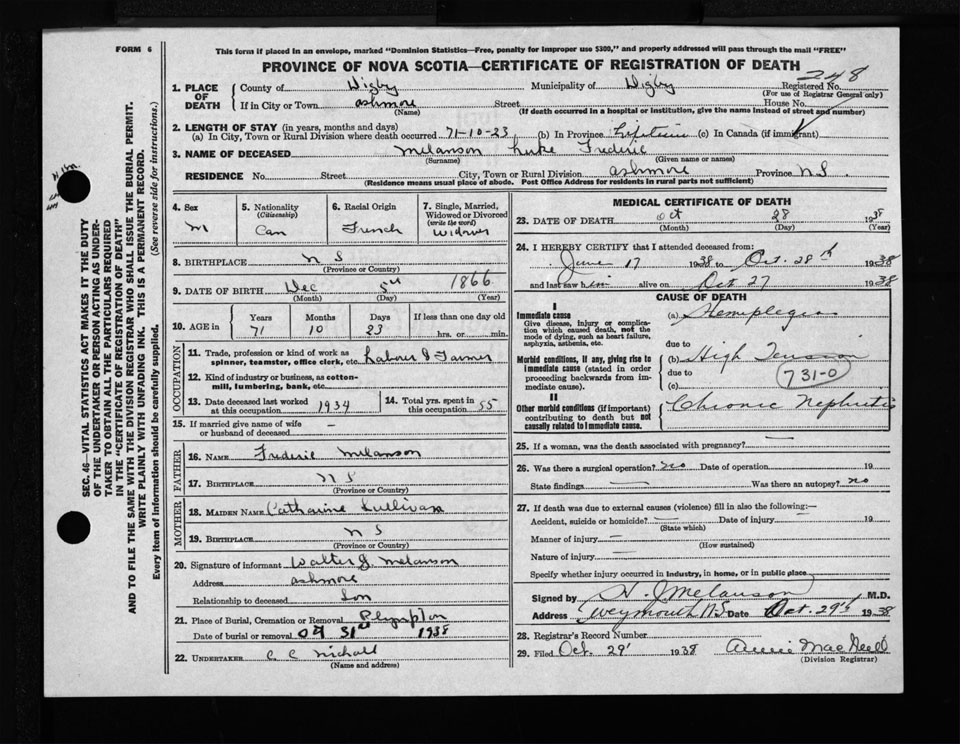 FORM 6
This form if placed in an envelope, marked "Dominion Statistics—Free, penalty for improper use $300," and properly addressed will pass through the mail "FREE"
PROVINCE OF NOVA SCOTIA—CERTIFICATE OF REGISTRATION OF DEATH
248
1. PLACE OF DEATH { County of Digby Municipality of Digby Registered No.
(For use of Registrar General only)
If in City or Town ashmore Street House No.
(Name) (If death occurred in a hospital or institution, give the name instead of street and number)
2. LENGTH OF STAY (in years, months and days)
(a) In City, Town or Rural Division where death occurred 71-10-23 (b) In Province Lifetime (c) In Canada (if immigrant)
3. NAME OF DECEASED Melanson Luke Frederic
(Surname) (Given name or names)
RESIDENCE No. Street City, Town or Rural Division ashmore Province N S
(Residence means usual place of abode. Post Office Address for residents in rural parts not sufficient)
4. Sex
M
5. Nationality
(Citizenship)
Can
6. Racial Origin
French
7. Single, Married, Widowed or Divorced
(write the word)
Widower
8. BIRTHPLACE N S
(Province or Country)
9. DATE OF BIRTH Dec 5th 1866
(Month) (Day) (Year)
10. AGE in Years Months Days If less than one day old
71 10 23 hrs. or min.
OCCUPATION
11. Trade, profession or kind of work as spinner, teamster, office clerk, etc. Labour & Farmer
12. Kind of industry or business, as cotton-mill, lumbering, bank, etc.
13. Date deceased last worked at this occupation 1934
14. Total yrs. spent in this occupation 55
15. If married give name of wife or husband of deceased —
FATHER
16. NAME Frederic Melanson
17. BIRTHPLACE N S
(Province or Country)
MOTHER
18. MAIDEN NAME Catharine Sullivan
19. BIRTHPLACE N S
(Province or Country)
20. Signature of informant Walter J Melanson
Address ashmore
Relationship to deceased Son
21. Place of Burial, Cremation or Removal Plympton
Date of burial or removal Oct 31st 1938
22. UNDERTAKER C C Nichall
(Name and address)
MEDICAL CERTIFICATE OF DEATH
23. DATE OF DEATH Oct 28 1938
(Month) (Day) (Year)
24. I HEREBY CERTIFY that I attended deceased from:
June 17 1938 to Oct. 28th 1938
and last saw him alive on Oct 27 1938
CAUSE OF DEATH
I
Immediate cause
Give disease, injury or complication which caused death, not the mode of dying, such as heart failure, asphyxia, asthenia, etc.
(a) Hemiplegia
due to
Morbid conditions, if any, giving rise to immediate cause (stated in order proceeding backwards from immediate cause).
(b) High Tension
due to
731-0
(c)
II
Other morbid conditions (if important) contributing to death but not causally related to immediate cause.
Chronic Nephritis
25. If a woman, was the death associated with pregnancy? —
26. Was there a surgical operation? no Date of operation 19
State findings — Was there an autopsy? no
27. If death was due to external causes (violence) fill in also the following:—
Accident, suicide or homicide? — Date of injury — 19
(State which)
Manner of injury —
(How sustained)
Nature of injury —
Specify whether injury occurred in industry, in home, or in public place
Signed by H. J Melanson M.D.
Address Weymouth N.S Date Oct. 29th 1938
28. Registrar's Record Number
29. Filed Oct. 29' 1938 Annie MacNeill
(Division Registrar)
SEC. 46—VITAL STATISTICS ACT MAKES IT THE DUTY
OF THE UNDERTAKER OR PERSON ACTING AS UNDERTAKER TO OBTAIN ALL THE PARTICULARS REQUIRED
IN THE "CERTIFICATE OF REGISTRATION OF DEATH"
AND TO FILE THE SAME WITH THE DIVISION REGISTRAR WHO SHALL ISSUE THE BURIAL PERMIT.
WRITE PLAINLY WITH UNFADING INK. THIS IS A PERMANENT RECORD.
Every item of information should be carefully supplied. (See reverse side for instructions.)